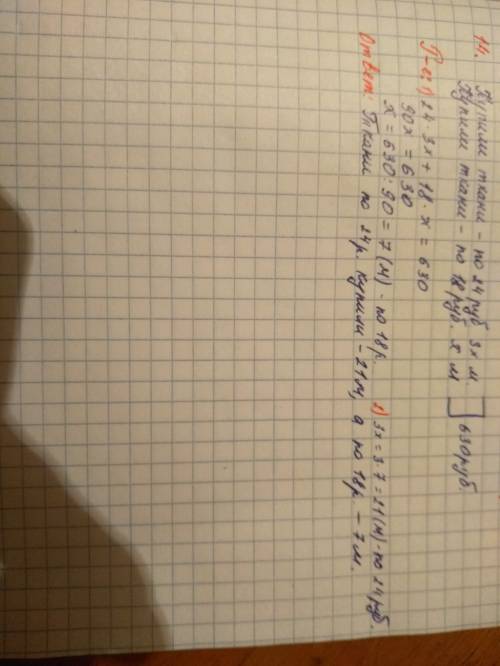 14. Купили ткани - по 24 руб 3х м
Купили ткани - по 18 руб. х м ] 630 руб.
П-е: 1) 24 · 3х + 18 · х = 630
90х = 630
х = 630 : 90 = 7 (м) - по 18 р. 2) 3х = 3 · 7 = 21 (м) - по 24 руб.
Ответ: Ткани по 24 р. купили - 21 м, а по 18 р. - 7 м.